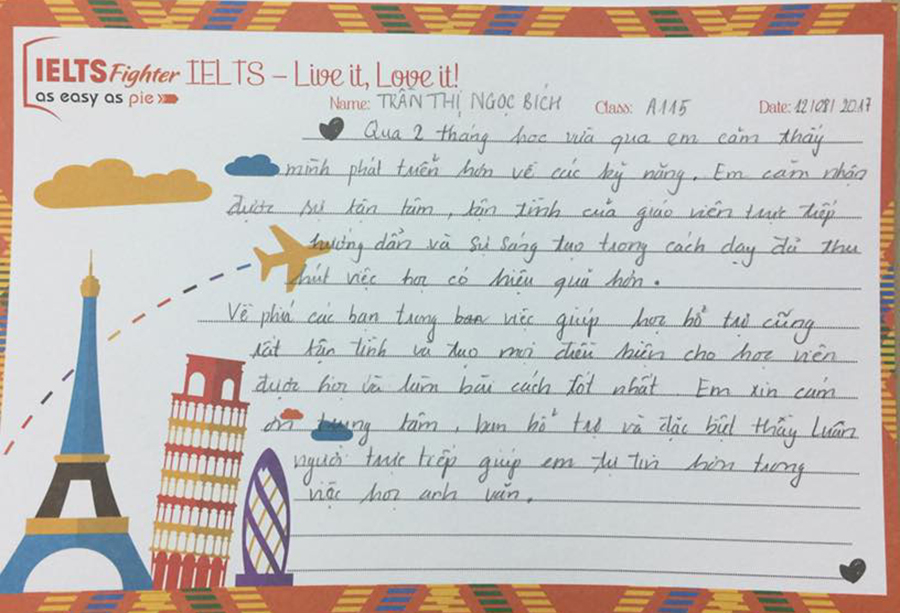 IELTS Fighter IELTS – Live it, Love it!
as easy as pie
Name: TRẦN THỊ NGỌC BÍCH Class: A115 Date: 12/08/2017
Qua 2 tháng học vừa qua em cảm thấy
mình phát triển hơn về các kỹ năng. Em cảm nhận
được sự tận tâm, tận tình của giáo viên trực tiếp
hướng dẫn và sự sáng tạo trong cách dạy đã thu
hút việc học có hiệu quả hơn.
Về phía các bạn trong ban việc giúp học hỗ trợ cũng
rất tận tình và tạo mọi điều kiện cho học viên
được học và làm bài cách tốt nhất. Em xin cám
ơn trung tâm, ban hỗ trợ và đặc biệt thầy Luân
người trực tiếp giúp em tự tin hơn trong
việc học anh văn.